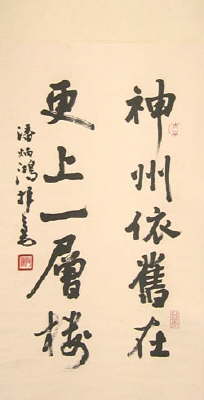 神州依舊在
更上一層楼
潘炳鴻